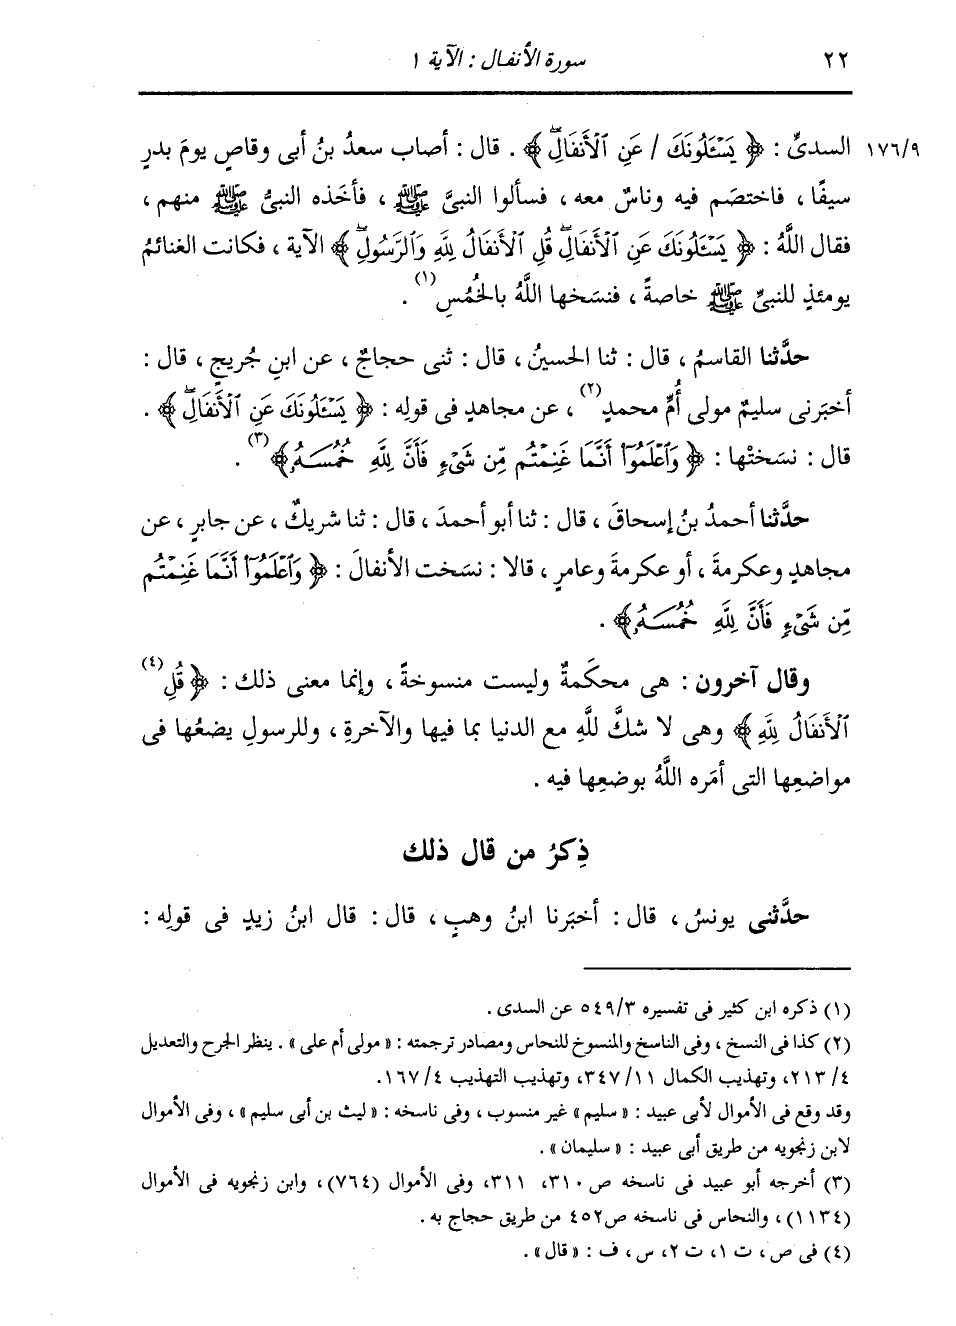 ٢٢ سورة الأنفال : الآية ١
١٧٦/٩ السدىِّ : ﴿ يَسْـَٔلُونَكَ / عَنِ ٱلْأَنفَالِۖ ﴾ . قال : أصاب سعدُ بنُ أبى وقاصٍ يومَ بدرٍ
سيفًا ، فاختصَم فيه وناسٌ معه ، فسألوا النبىَّ ﷺ ، فأخَذه النبىُّ ﷺ منهم ،
فقال اللَّهُ : ﴿ يَسْـَٔلُونَكَ عَنِ ٱلْأَنفَالِۖ قُلِ ٱلْأَنفَالُ لِلَّهِ وَٱلرَّسُولِۖ ﴾ الآية ، فكانت الغنائمُ
يومئذٍ للنبىِّ ﷺ خاصةً ، فنسَخها اللَّهُ بالخُمُسِ (١) .
حدَّثنا القاسمُ ، قال : ثنا الحسينُ ، قال : ثنى حجاجٌ ، عن ابنِ جُريجٍ ، قال :
أخبَرنى سليمٌ مولى أُمِّ محمدٍ (٢) ، عن مجاهدٍ فى قولِه : ﴿ يَسْـَٔلُونَكَ عَنِ ٱلْأَنفَالِۖ ﴾ .
قال : نسَختْها : ﴿ وَٱعْلَمُوٓا۟ أَنَّمَا غَنِمْتُم مِّن شَىْءٍ فَأَنَّ لِلَّهِ خُمُسَهُۥ ﴾ (٣) .
حدَّثنا أحمدُ بنُ إسحاقَ ، قال : ثنا أبو أحمدَ ، قال : ثنا شريكٌ ، عن جابرٍ ، عن
مجاهدٍ وعكرمةَ ، أو عكرمةَ وعامرٍ ، قالا : نسَخت الأنفالَ : ﴿ وَٱعْلَمُوٓا۟ أَنَّمَا غَنِمْتُم
مِّن شَىْءٍ فَأَنَّ لِلَّهِ خُمُسَهُۥ ﴾ .
وقال آخرون : هى محكَمةٌ وليست منسوخةً ، وإنما معنى ذلك : ﴿ قُلِ (٤)
ٱلْأَنفَالُ لِلَّهِ ﴾ وهى لا شكَّ للَّهِ مع الدنيا بما فيها والآخرةِ ، وللرسولِ يضعُها فى
مواضعِها التى أمَره اللَّهُ بوضعِها فيه .
ذِكرُ من قال ذلك
حدَّثنى يونسُ ، قال : أخبَرنا ابنُ وهبٍ ، قال : قال ابنُ زيدٍ فى قولِه :
(١) ذكره ابن كثير فى تفسيره ٥٤٩/٣ عن السدى .
(٢) كذا فى النسخ ، وفى الناسخ والمنسوخ للنحاس ومصادر ترجمته : « مولى أم على » . ينظر الجرح والتعديل
٢١٣/٤ ، وتهذيب الكمال ٣٤٧/١١ ، وتهذيب التهذيب ١٦٧/٤ .
وقد وقع فى الأموال لأبى عبيد : « سليم » غير منسوب ، وفى ناسخه : « ليث بن أبى سليم » ، وفى الأموال
لابن زنجويه من طريق أبى عبيد : « سليمان » .
(٣) أخرجه أبو عبيد فى ناسخه ص٣١٠ ، ٣١١ ، وفى الأموال (٧٦٤) ، وابن زنجويه فى الأموال
(١١٣٤) ، والنحاس فى ناسخه ص٤٥٢ من طريق حجاج به .
(٤) فى ص ، ت ١ ، ت ٢ ، س ، ف : « قال » .